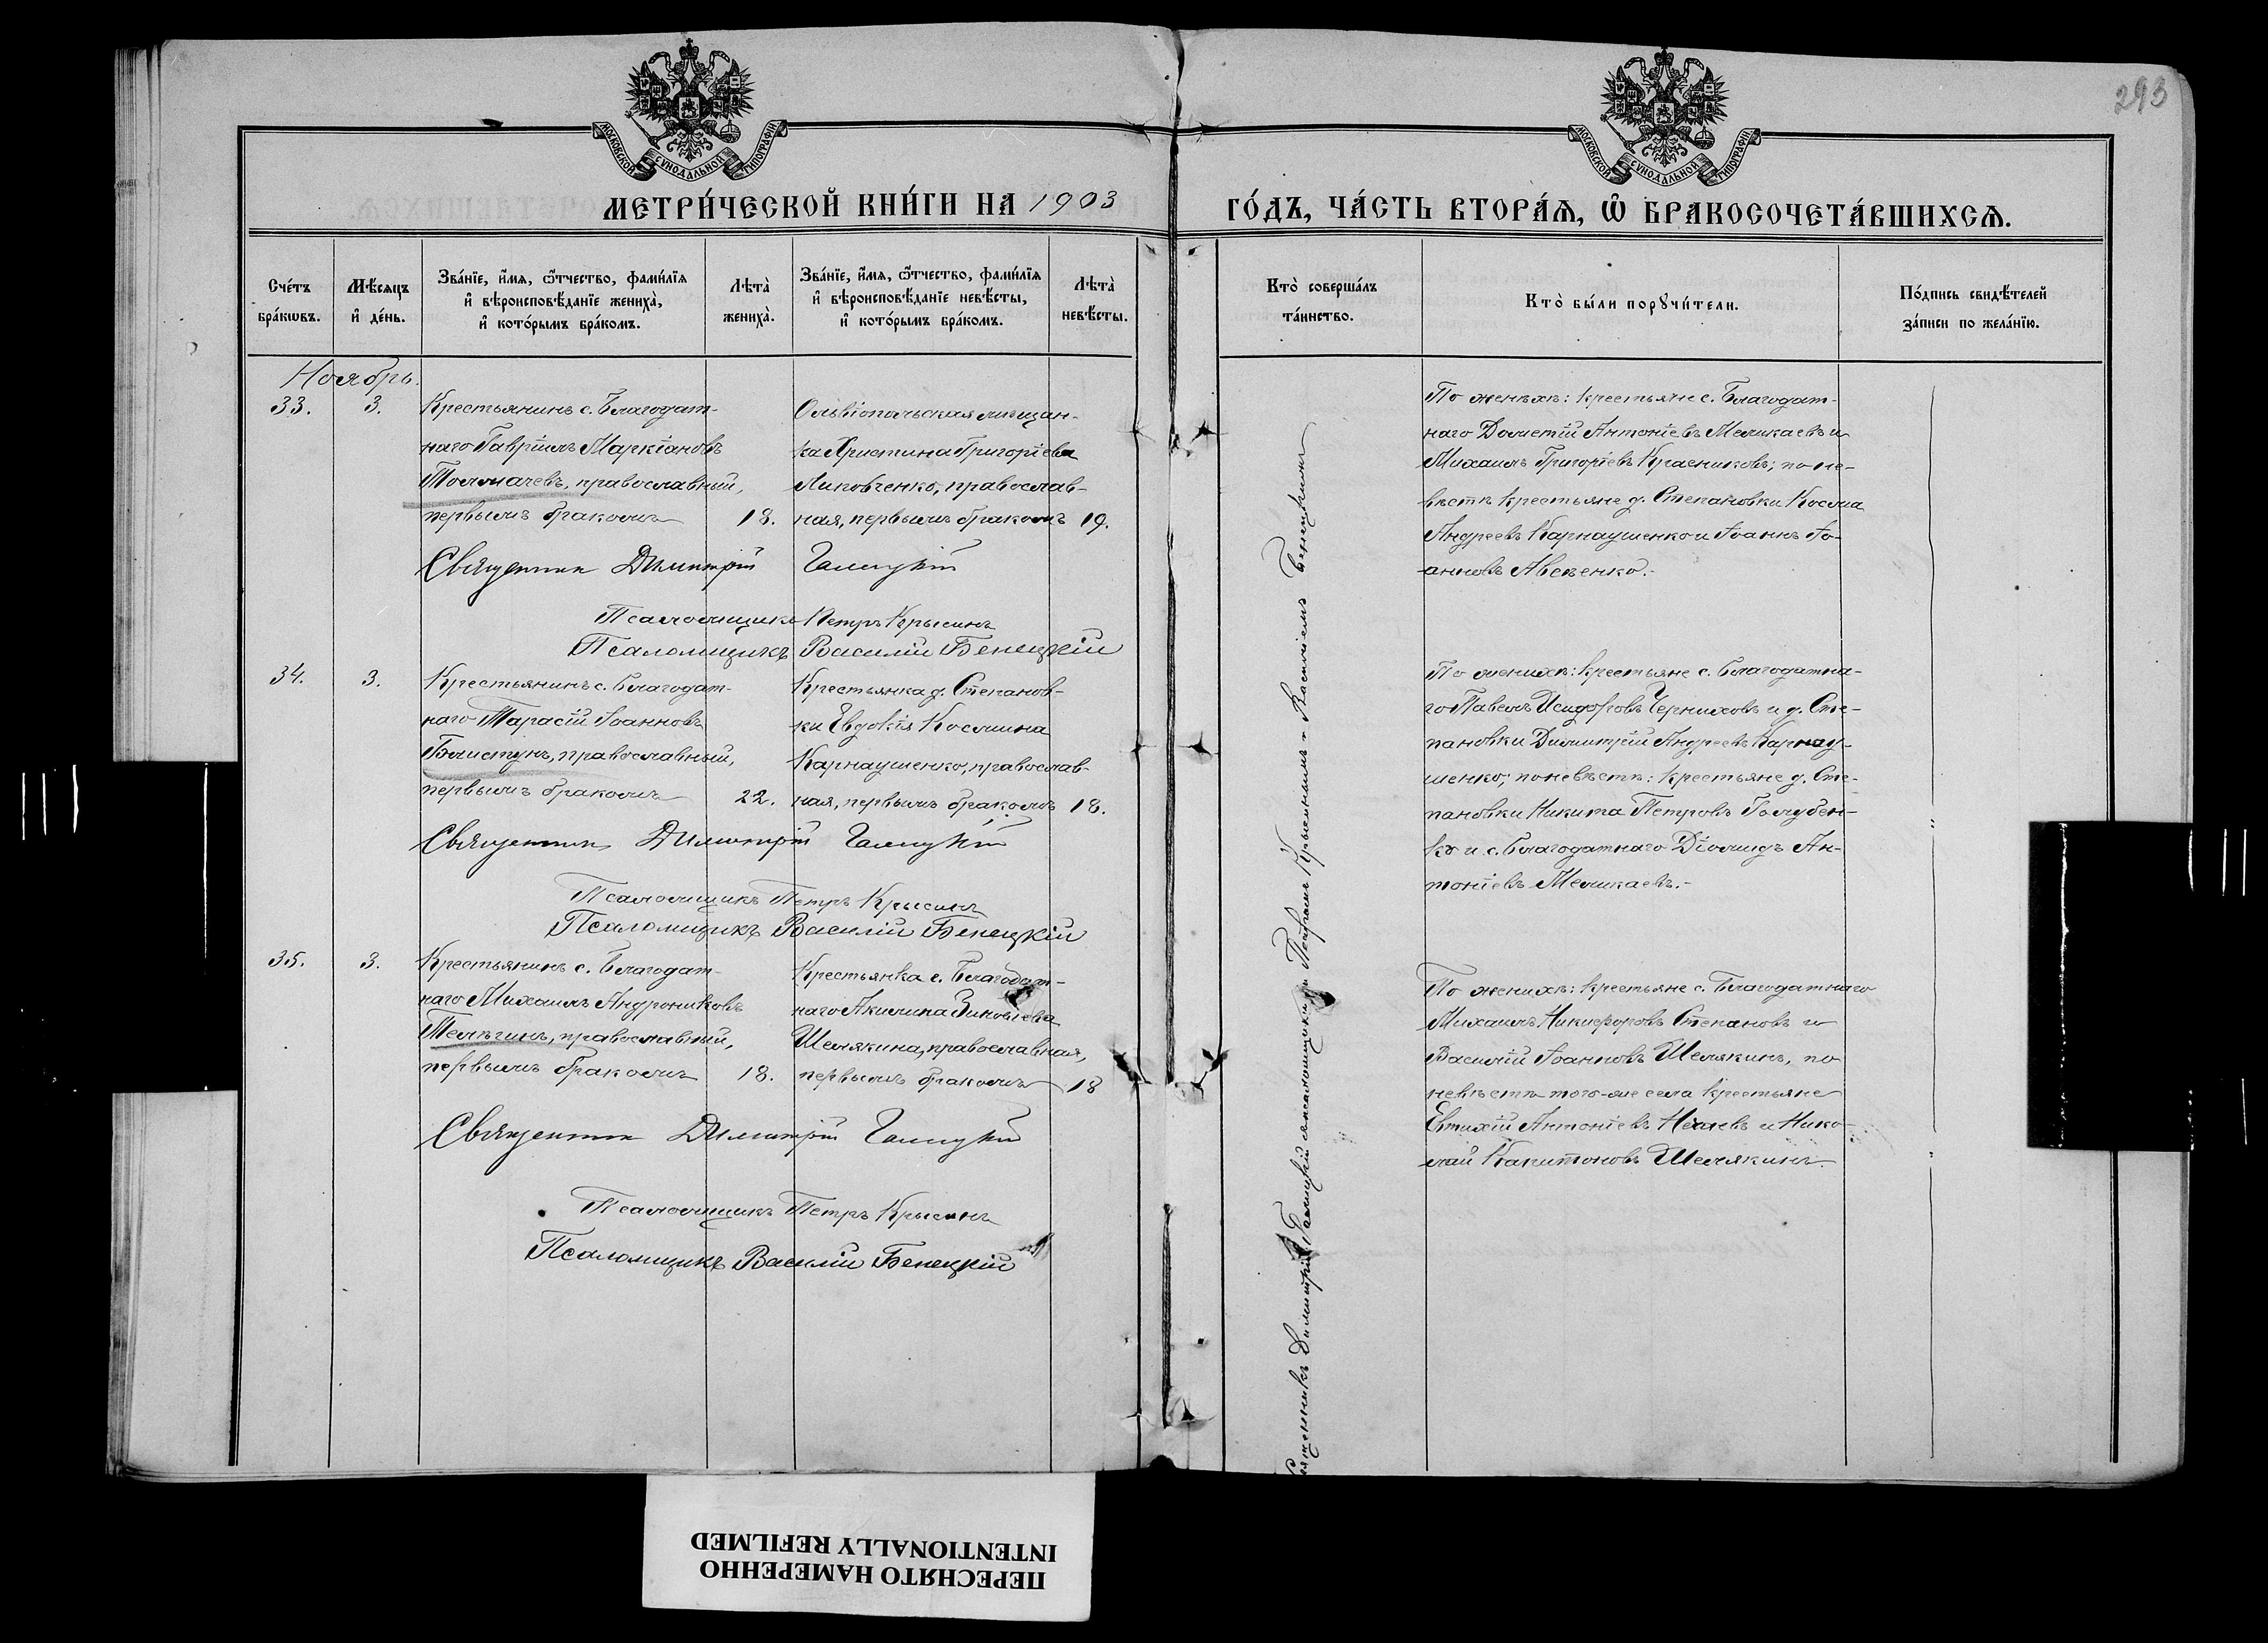 293
МОСКОВСКОЙ СѴНОДАЛЬНОЙ ТИПОГРАФІИ
МОСКОВСКОЙ СѴНОДАЛЬНОЙ ТИПОГРАФІИ
МЕТРИ́ЧЕСКОЙ КНИ́ГИ НА 1903
ГО́ДЪ, ЧА́СТЬ ВТОРА́Ѧ, Ѡ҆ БРАКОСОЧЕТА́ВШИХСѦ.
Сче́тъ
бра́кѡвъ.
Мѣ́сяцъ
и҆ де́нь.
Зва́нїе, и҆́мя, ѻ҆́тчество, фами́лїя
и҆ вѣроисповѣ́данїе жениха̀,
и҆ кото́рымъ бра́комъ.
Лѣта̀
жениха̀.
Зва́нїе, и҆́мя, ѻ҆́тчество, фами́лїя
и҆ вѣроисповѣ́данїе невѣ́сты,
и҆ кото́рымъ бра́комъ.
Лѣта̀
невѣ́сты.
Кто̀ соверша́лъ
та́инство.
Кто̀ бы́ли порꙋчи́тели.
По́дпись свидѣ́телей
за́писи по жела́нїю.
Ноябрь.
33.
3.
Крестьянинъ с. Благодат-
наго Гавріилъ Маркіановъ
Толмачевъ, православный,
первымъ бракомъ
18.
Ольвіопольская мѣщан-
ка Христина Григоріева
Липовченко, православ-
ная, первымъ бракомъ
19.
По женихѣ: крестьяне с. Благодат-
наго Дометій Антоніевъ Меликаевъ и
Михаилъ Григоріевъ Красниковъ; по не-
вѣстѣ крестьяне д. Степановки Косма
Андреевъ Карнаушенко и Іоаннъ Іо-
анновъ Авсѣенко.-
Священник Димитрій Галицкій
Псаломщикъ Петръ Крысинъ
Псаломщикъ Василій Бенецкій
34.
3.
Крестьянинъ с. Благодат-
наго Тарасій Іоанновъ
Блистунъ, православный,
первымъ бракомъ
22.
Крестьянка д. Степанов-
ки Евдокія Космина
Карнаушенко, православ-
ная, первымъ бракомъ
18.
По женихѣ: крестьяне с. Благодатна-
го Павелъ Исидоровъ Черниховъ и д. Сте-
пановки Димитрій Андреевъ Карнау-
шенко; по невѣстѣ: крестьяне д. Сте-
пановки Никита Петровъ Голубен-
ко и с. Благодатнаго Діомидъ Ан-
тоніевъ Меликаевъ.-
Священник Димитрій Галицкій
Псаломщикъ Петръ Крысинъ
Псаломщикъ Василій Бенецкій
35.
3.
Крестьянинъ с. Благодат-
наго Михаилъ Андрониковъ
Телѣгинъ, православный,
первымъ бракомъ
18.
Крестьянка с. Благодат-
наго Акилина Зиновіева
Шелякина, православная,
первымъ бракомъ
18
По женихѣ: крестьяне с. Благодатнаго
Михаилъ Никифоровъ Степановъ и
Василій Іоанновъ Шелякинъ, по
невѣстѣ того-же села крестьяне
Евтихій Антоніевъ и Нико-
лай Капитоновъ Шелякинъ.
Священник Димитрій Галицкій
Псаломщикъ Петръ Крысинъ
Псаломщикъ Василій Бенецкій
Священникъ Димитрій Галицкій съ псаломщиками Петромъ Крысинымъ и Василіемъ Бенецкимъ
ПЕРЕСНЯТО НАМЕРЕННО
INTENTIONALLY REFILMED